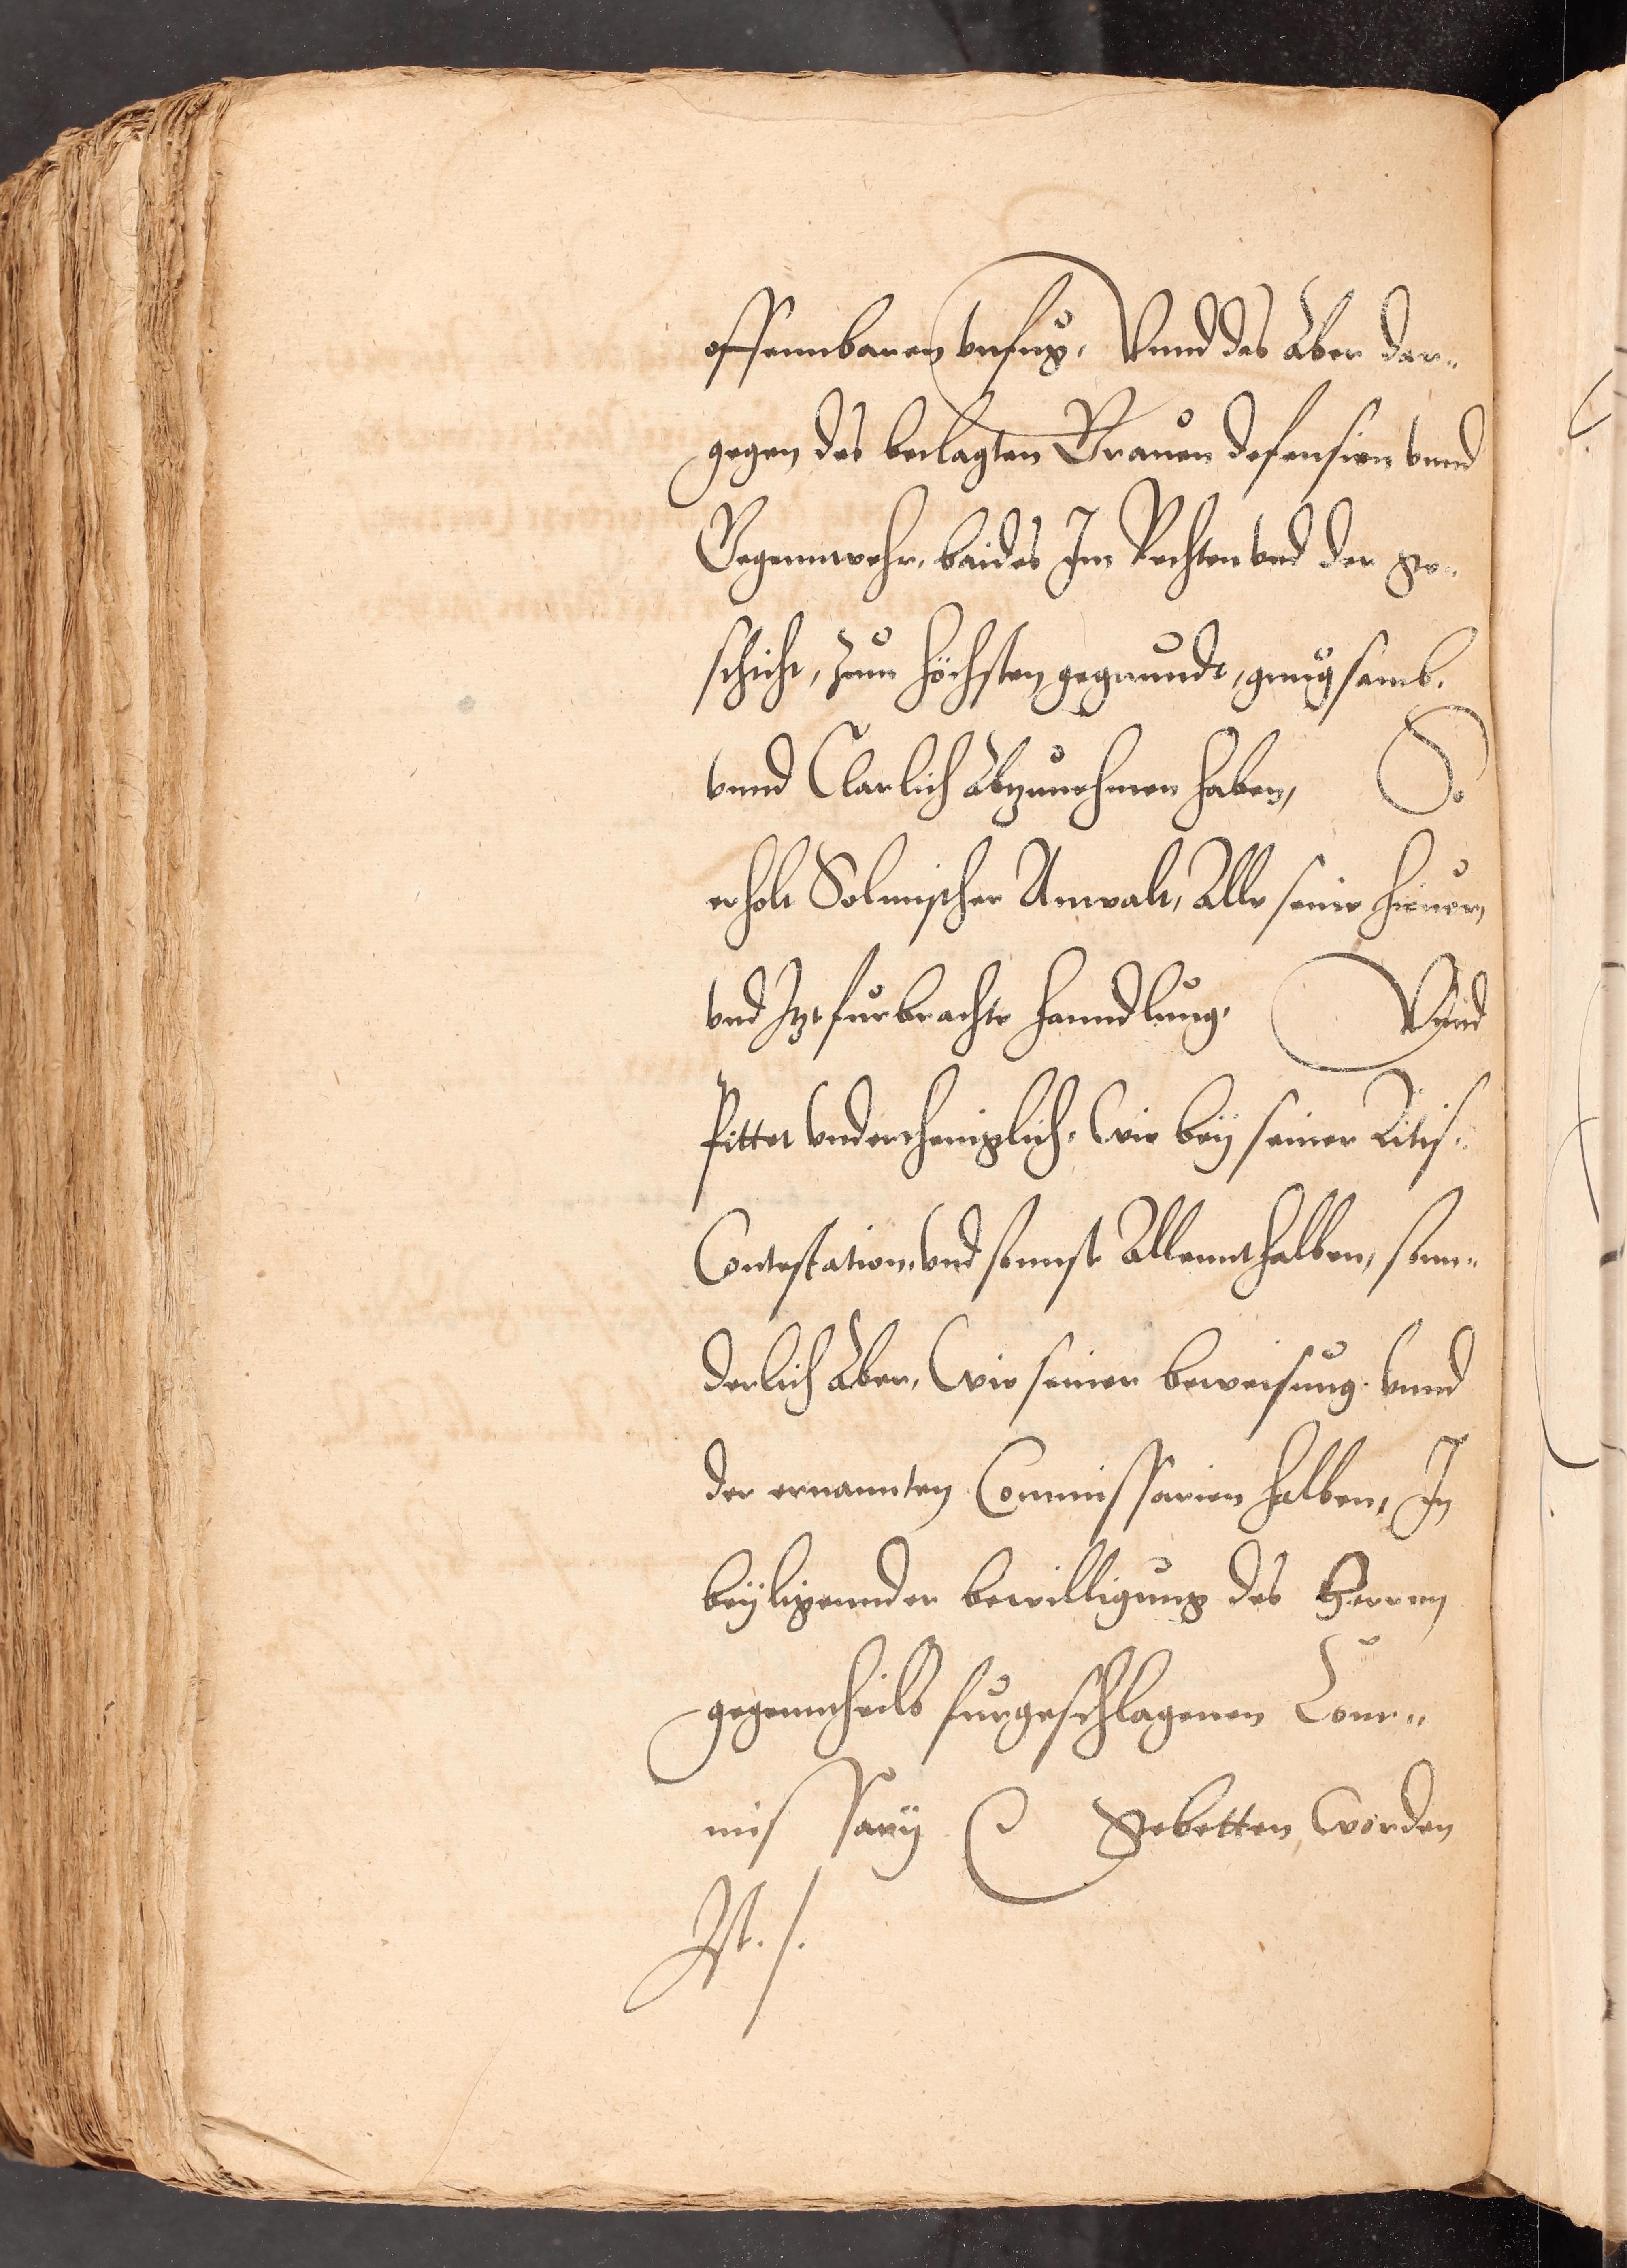 offennbaren unfug, Vnnd das aber dar¬
gegen des beclagten Grauen defension vnnd
Gegennwehr, baides Im Rechten vnd der ge¬
schicht, zum höchsten gegrundt, gnugsamb.
vnnd Clarlich abzunehmen haben, S.
erholt Solmischer Anwalt, Alle seine hieuor,
vnd Jtzt furbrachte hanndlung. Vnnd
Pittet vndertheniglich, Wie bey seiner Litis¬
Contestation, vnd sonnst Allennthalben, sonn¬
derlich aber, Wie seiner beweisung vnnd
der ernannten Commissarien halben, In
beyligennder bewilligung des Herrnn
gegenntheils furgeschlagenen Com¬
missarij Gebetten worden
Ist ./.